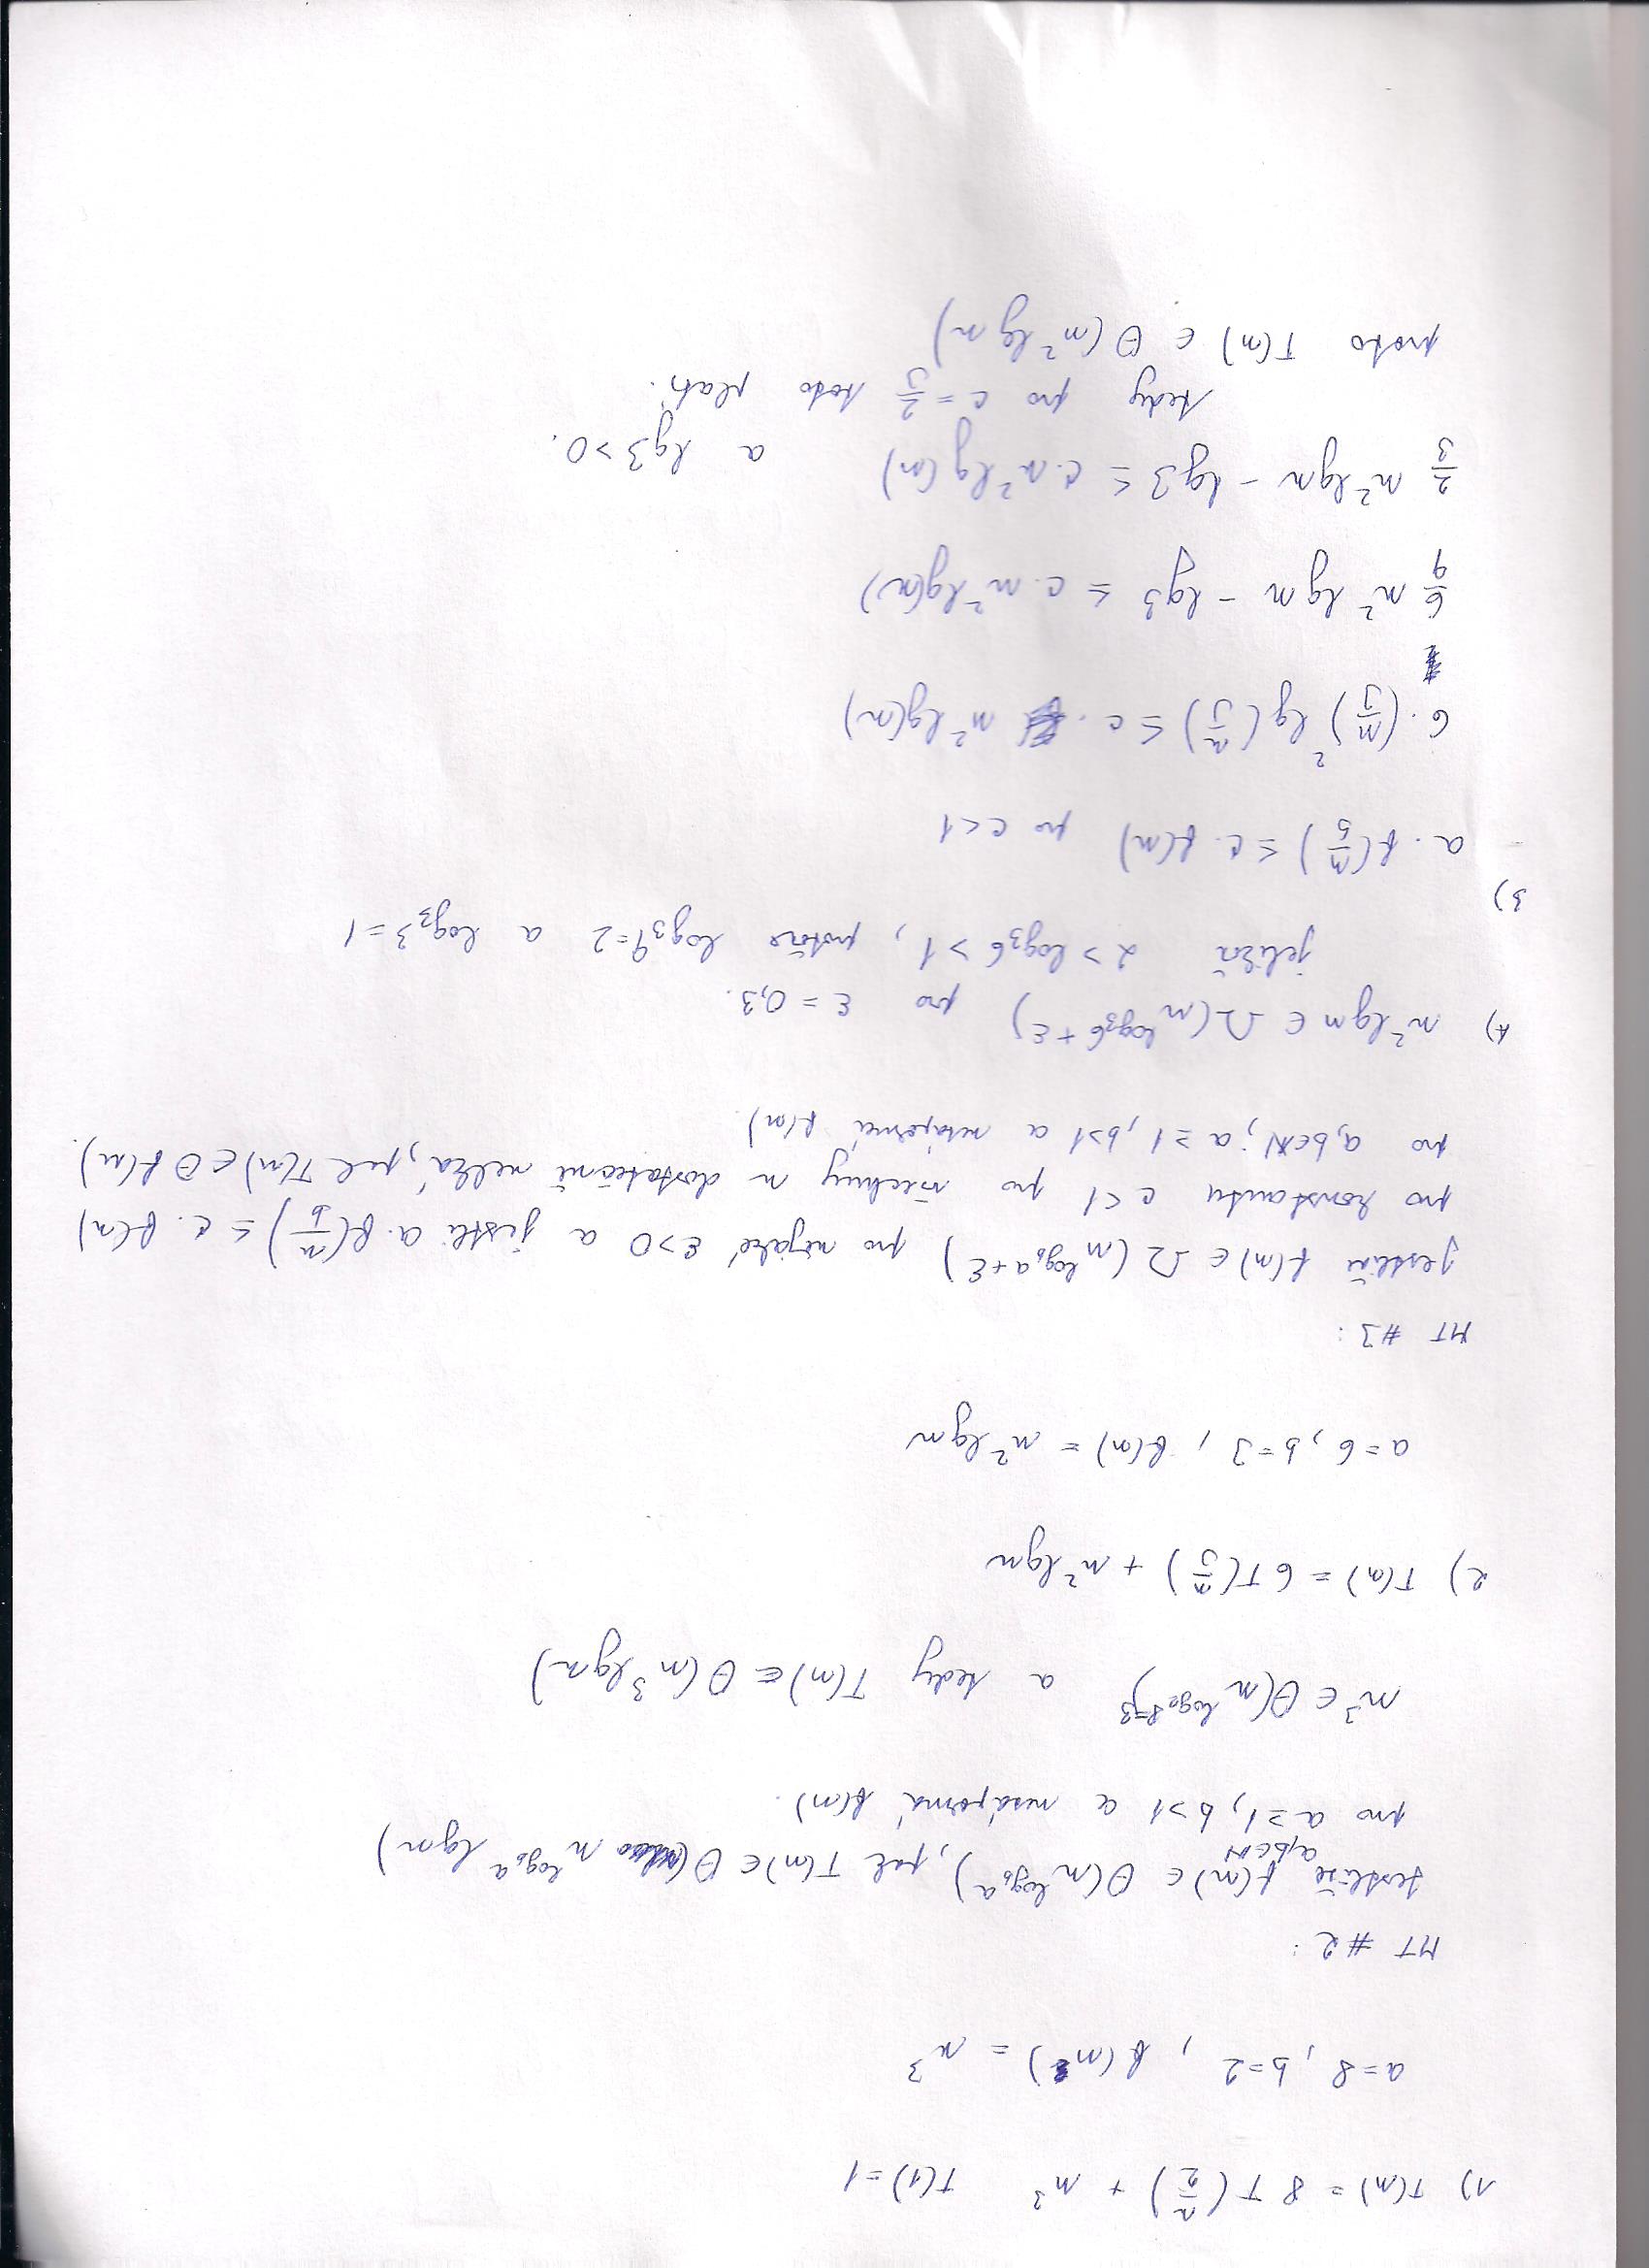 1) T(n) = 8 T(n/2) + n³    T(1) = 1
a=8, b=2, f(n) = n³
MT #2:
Jestliže f(n) ∈ Θ(n^(log_b a)), pak T(n) ∈ Θ(n^(log_b a) lg n)
a,b∈N
pro a ≥ 1, b > 1 a nezáporná f(n).
n³ ∈ Θ(n^(log₂8=3)) a tedy T(n) ∈ Θ(n³ lg n)
2) T(n) = 6 T(n/3) + n² lg n
a=6, b=3, f(n) = n² lg n
MT #3:
jestliže f(n) ∈ Ω(n^(log_b a + ε)) pro nějaké ε>0 a jestli a. f(n/b) ≤ c. f(n)
pro konstantu c<1 pro všechny n dostatečně velká, pak T(n) ∈ Θ f(n).
pro a,b∈N; a ≥ 1, b>1 a nezáporná f(n).
A) n² lg n ∈ Ω(n^(log₃6 + ε)) pro ε = 0,3.
jelikož 2 > log₃6 > 1, protože log₃9=2 a log₃3=1
B)
a. f(n/b) ≤ c. f(n) pro c<1
6. (n/3)² lg(n/3) ≤ c. n² lg(n)
6/9 n² lg n - lg3 ≤ c. n² lg(n)
2/3 n² lg n - lg3 ≤ c. n² lg(n)    a lg3 >0.
tedy pro c = 2/3 toto platí.
proto T(n) ∈ Θ(n² lg n)